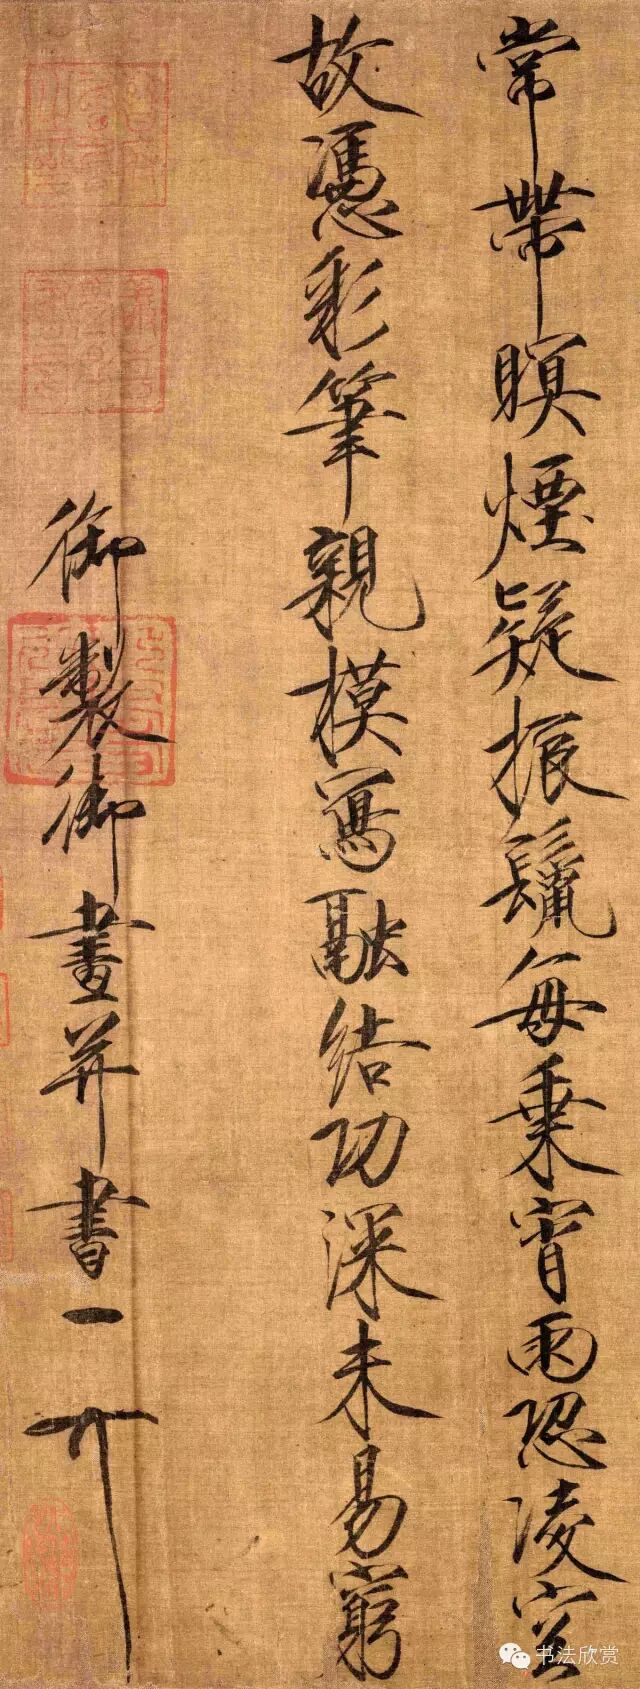 常帶暝煙疑振鬣每乘宵雨恐凌空
故憑彩筆親模寫融結功深未易窮
御製御畫并書
书法欣赏